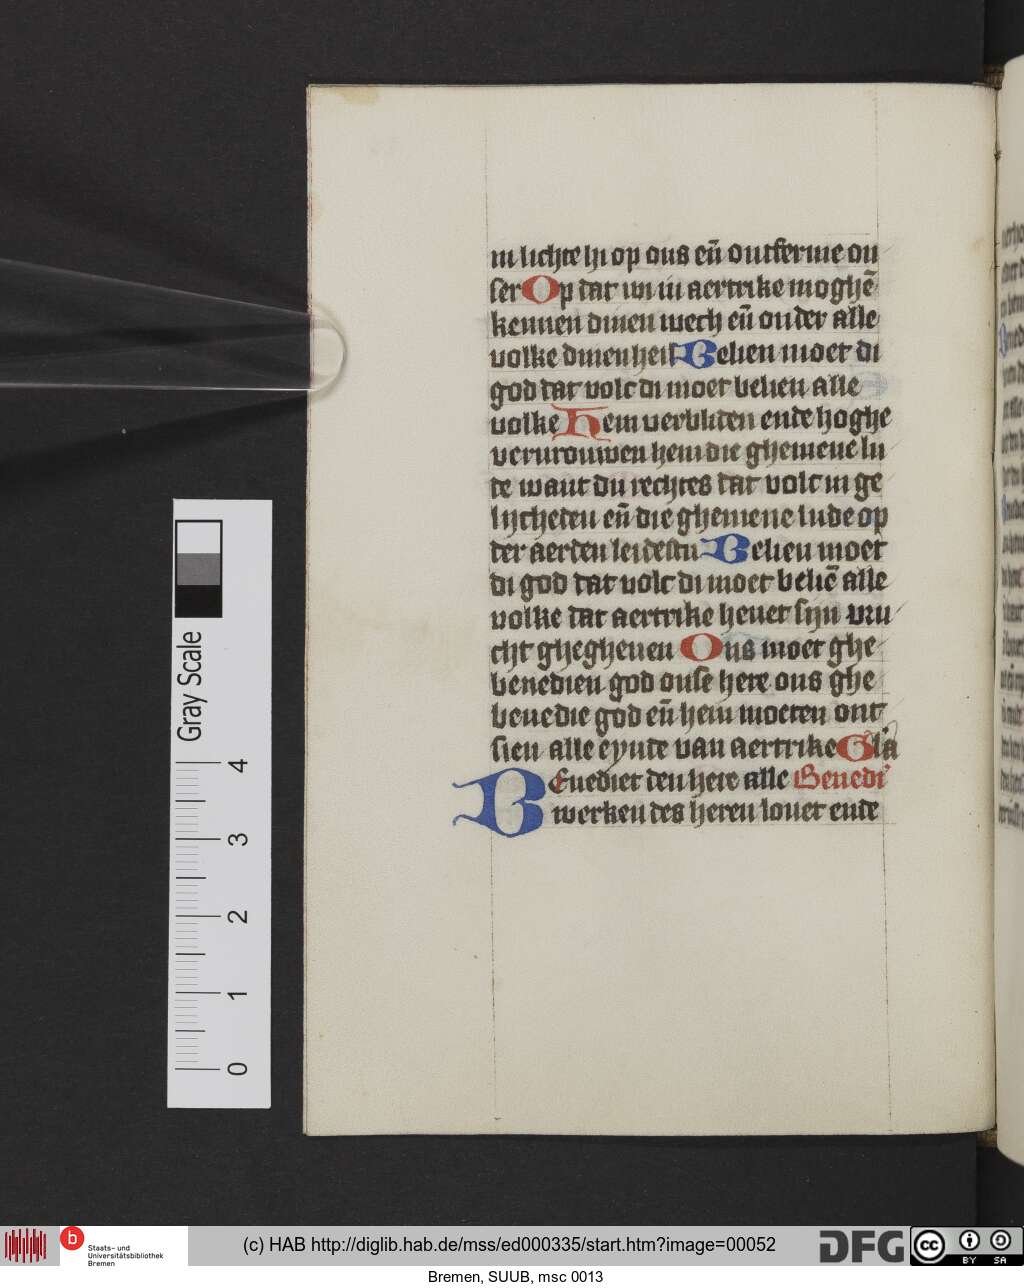 in lichte hi op ons eñ ontferme on
ser Op dat wi in aertrike moghē
kennen dinen wech eñ onder alle
volke dinen heil Belien moet di
god dat volc di moet belien alle
volke Hem verbliden ende hoghe
vervrouwen hem die ghemene lu
de want du rechtes dat volc in ge
lijcheden eñ die ghemene lude op
der aerden leidestu Belien moet
di god dat volc di moet beliē alle
volke dat aertrike hevet sijn vru
cht ghegheven Ons moet ghe
benedien god onse here ons ghe
benedie god eñ hem moeten ont
sien alle eynde van aertrike Gla
BEnediet den here alle Benedi
werken des heren lovet ende
Gray Scale
4
3
2
1
0
b
Staats- und
Universitätsbibliothek
Bremen
(c) HAB http://diglib.hab.de/mss/ed000335/start.htm?image=00052
DFG
cc
BY SA
Bremen, SUUB, msc 0013